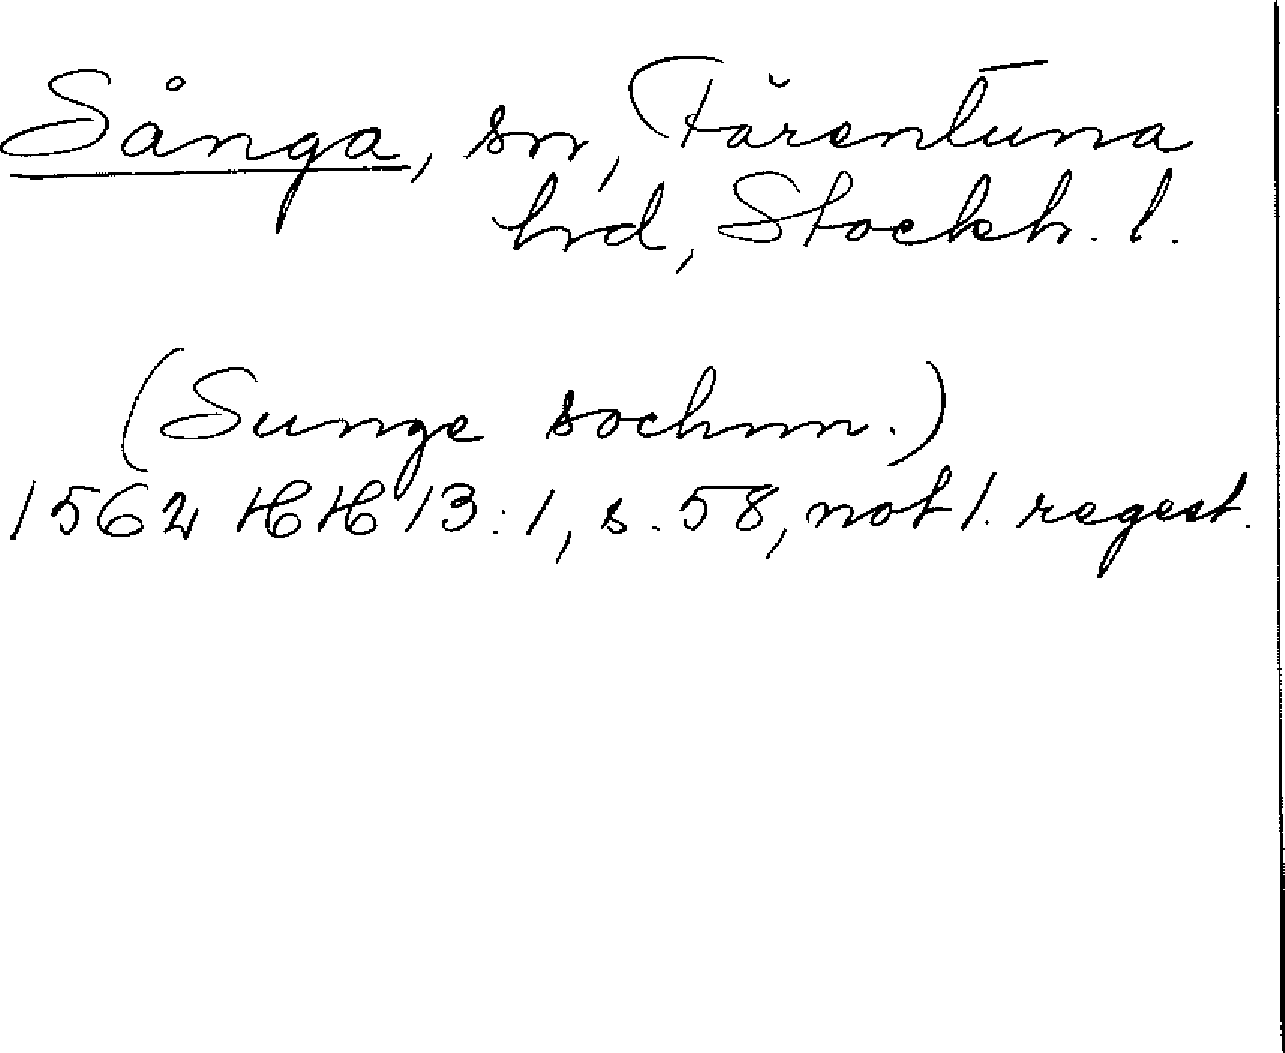 Sånga, sn, Färentuna
hrd, Stockh. l.
(Sunge sochnn.)
1562 HH 13:1, s. 58, not 1. regest.